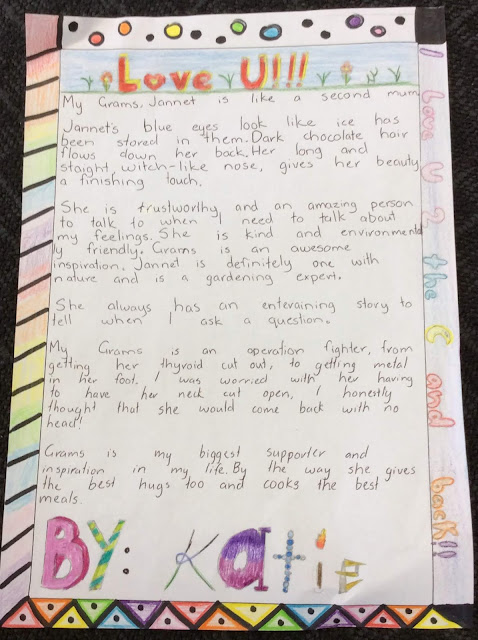 I Love U!!!
My Grams, Jannet is like a second mum
Jannet's blue eyes look like ice has
been stored in them. Dark chocolate hair
flows down her back. Her long and
staight, witch-like nose, gives her beauty
a finishing touch.
She is trustworthy and an amazing person
to talk to when I need to talk about
my feelings. She is kind and environmentl
y friendly. Grams is an awesome
inspiration. Jannet is definitely one with
nature and is a gardening expert.
She always has an entervaining story to
tell when I ask a question.
My Grams is an operation fighter, from
getting her thyroid cut out, to getting metal
in her foot. I was worried with her having
to have her neck cut open, I honestly
thought that she would come back with no
head!
Grams is my biggest supporter and
inspiration in my life. By the way she gives
the best hugs too and cooks the best
meals.
BY: Katie
I love U 2 the C and back!!